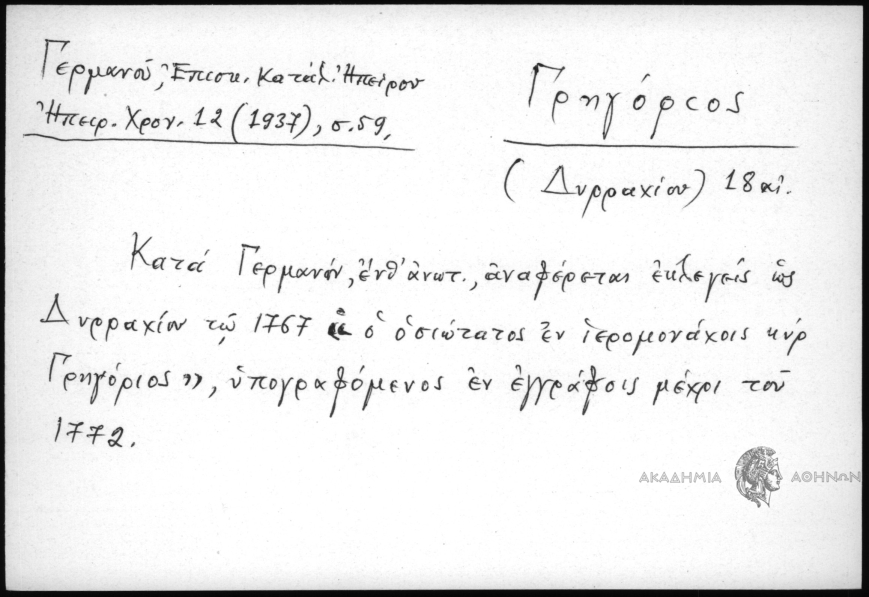 Γερμανοῦ, Ἐπισκ. Κατάλ. Ἠπείρου
Ἠπειρ. Χρον. 12 (1937), σ. 59,
Γρηγόριος
(Δυρραχίου) 18 αἰ.
Κατά Γερμανόν, ἔνθ' ἀνωτ., ἀναφέρεται ἐκλεγείς ὡς
Δυρραχίου τῷ 1767 « ὁ ὁσιώτατος ἐν ἱερομονάχοις κύρ
Γρηγόριος », ὑπογραφόμενος ἐν ἐγγράφοις μέχρι τοῦ
1772.
ΑΚΑΔΗΜΙΑ ΑΘΗΝΩΝ